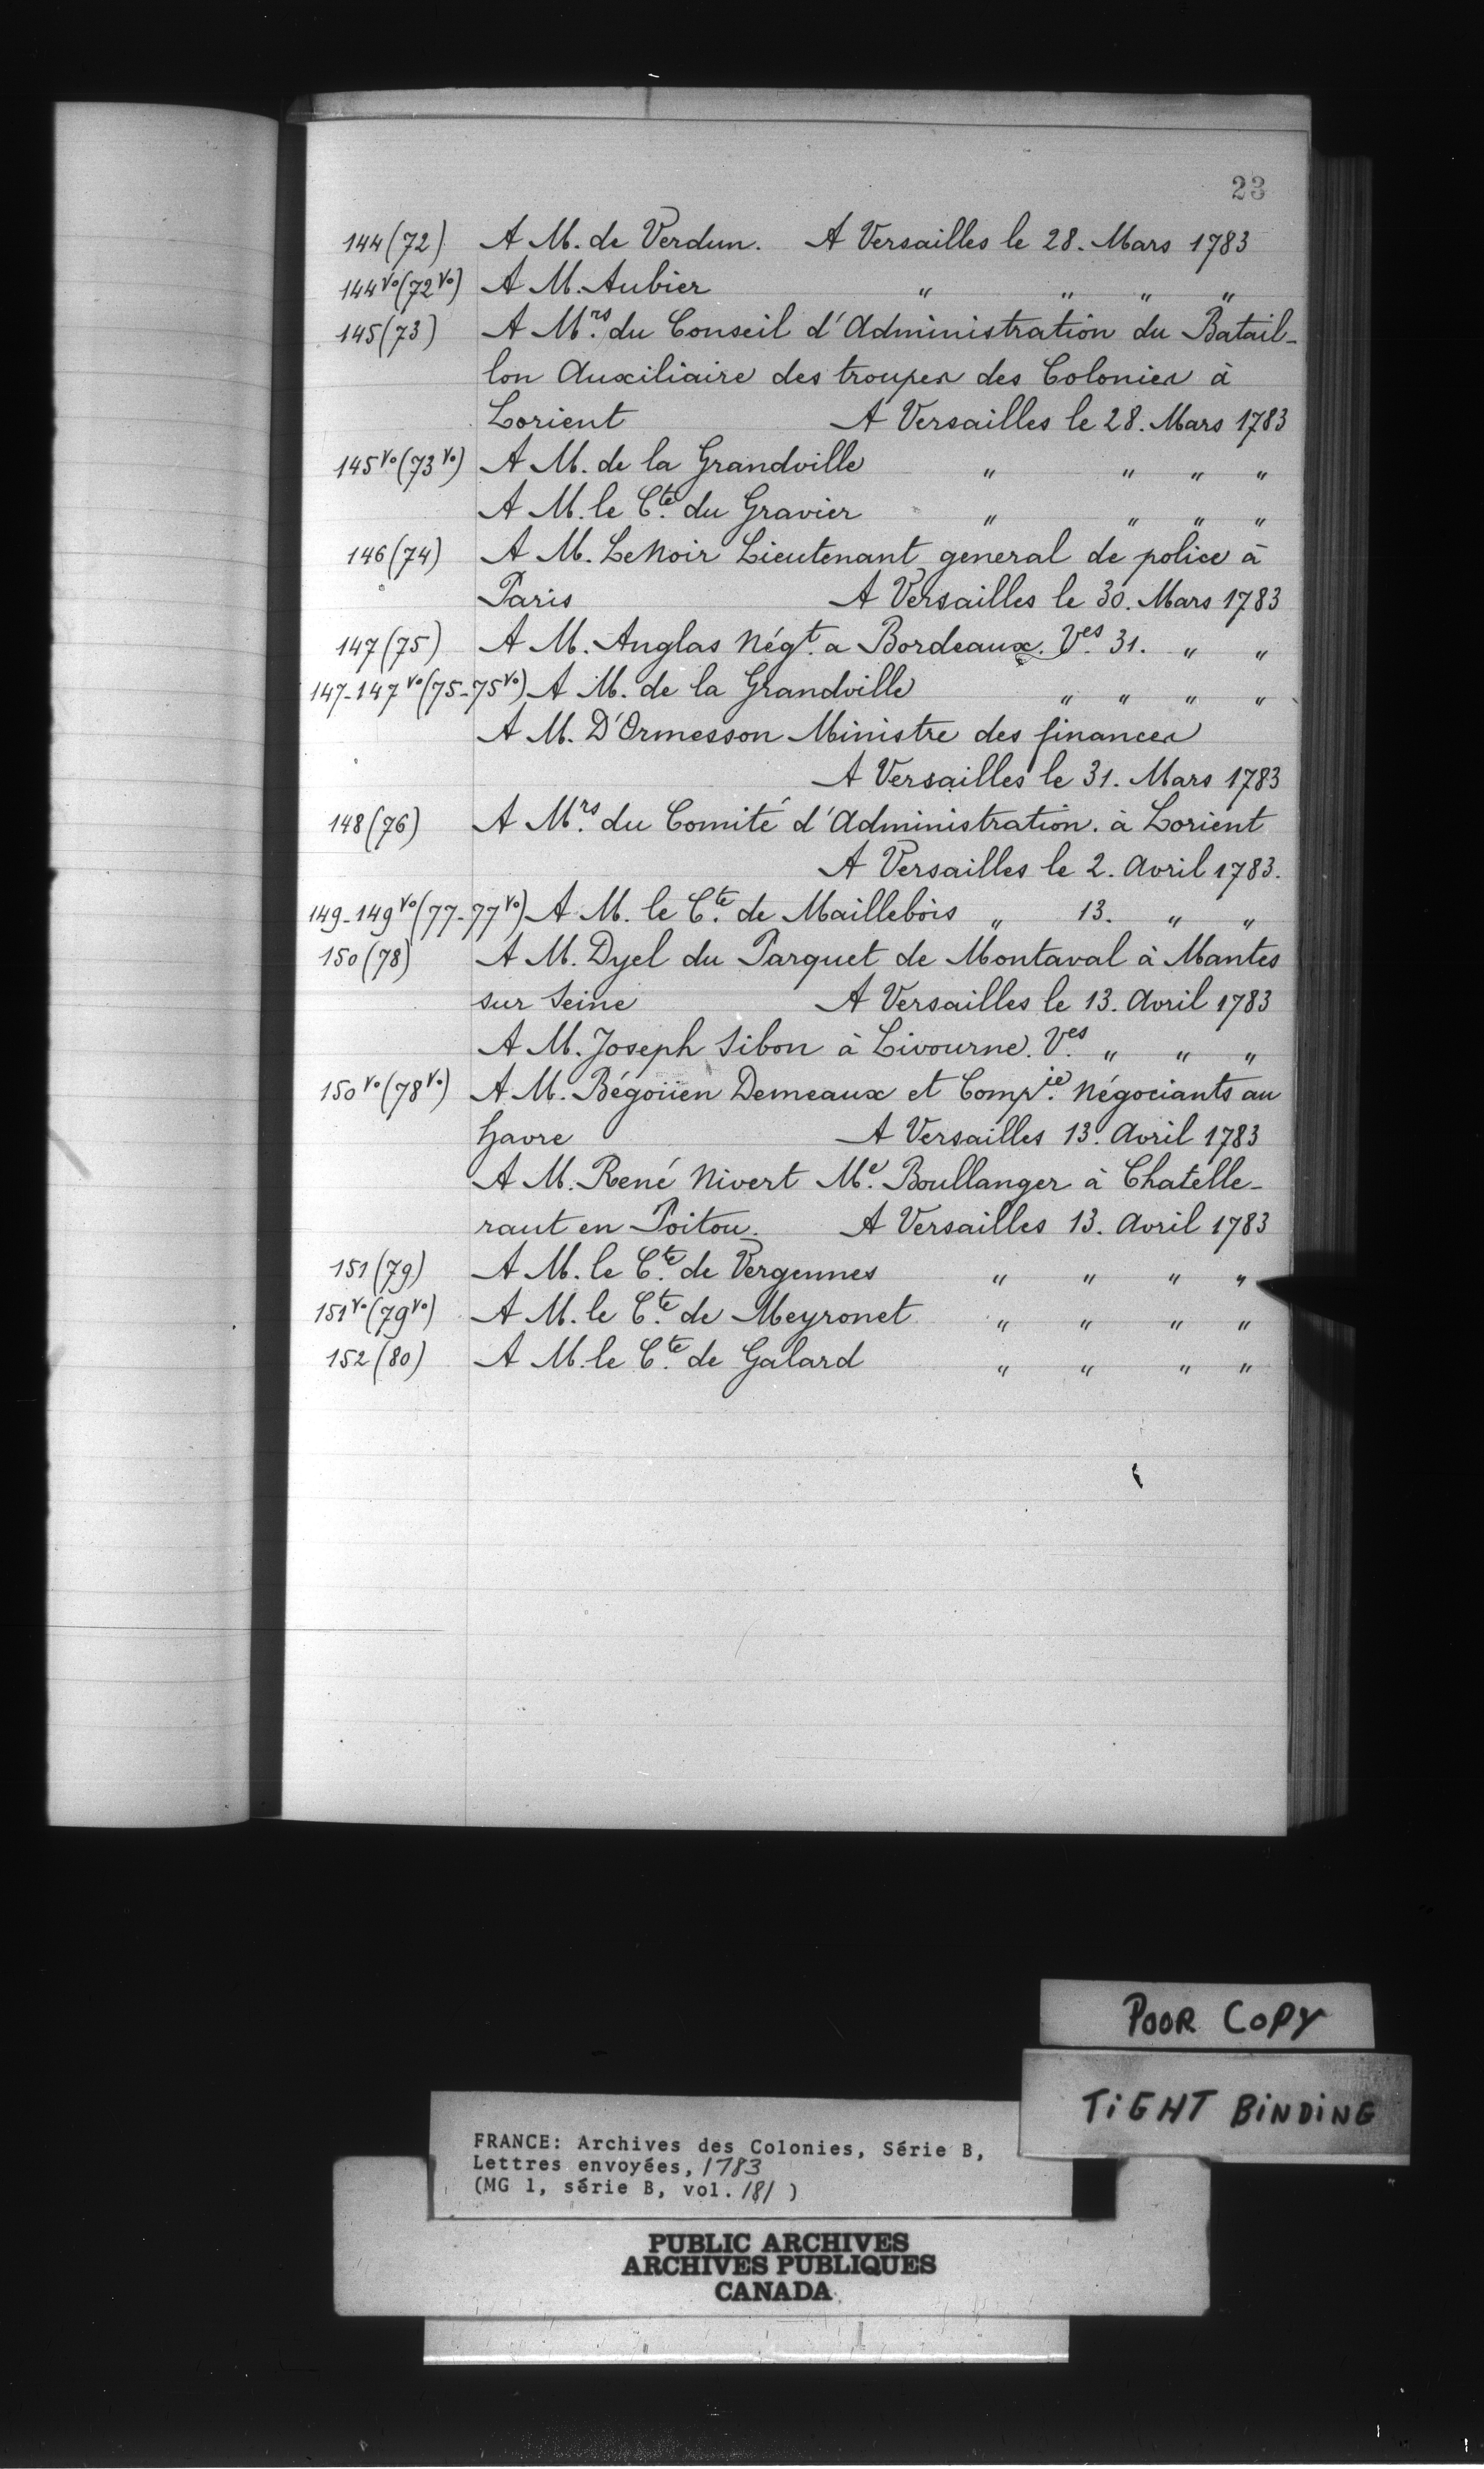 23
144 (72) A M. de Verdun. A Versailles le 28. Mars 1783
144 vo (72 vo) A M. Aubier " " " "
145 (73) A Mrs. du Conseil d'Administration du Batail-
lon Auxiliaire des troupes des Colonies à
Lorient A Versailles le 28. Mars 1783
145 vo (73 vo) A M. de la Grandville " " " "
A M. le Cte. du Gravier " " " "
146 (74) A M. LeNoir Lieutenant general de police à
Paris A Versailles le 30. Mars 1783
147 (75) A M. Anglas Négt. a Bordeaux. Ves. 31. " "
147-147 vo (75-75 vo) A M. de la Grandville " " " "
A M. D'Ormesson Ministre des finances
A Versailles le 31. Mars 1783
148 (76) A Mrs. du Comité d'Administration. à Lorient
A Versailles le 2. Avril 1783.
149-149 vo (77-77 vo) A M. le Cte. de Maillebois " 13. " "
150 (78) A M. Dyel du Parquet de Montaval à Mantes
sur Seine A Versailles le 13. Avril 1783
A M. Joseph Sibon à Livourne. Ves. " " "
150 vo (78 vo) A M. Bégoüen Demeaux et Compie. Négociants au
havre A Versailles 13. Avril 1783
A M. René Nivert Me. Boullanger à Chatelle-
raut en Poitou. A Versailles 13. Avril 1783
151 (79) A M. le Cte. de Vergennes " " " "
151 vo (79 vo) A M. le Cte. de Meyronet " " " "
152 (80) A M. le Cte. de Galard " " " "
POOR COPY
TIGHT BINDING
FRANCE: Archives des Colonies, Série B,
Lettres envoyées, 1783
(MG 1, série B, vol. 181 )
PUBLIC ARCHIVES
ARCHIVES PUBLIQUES
CANADA